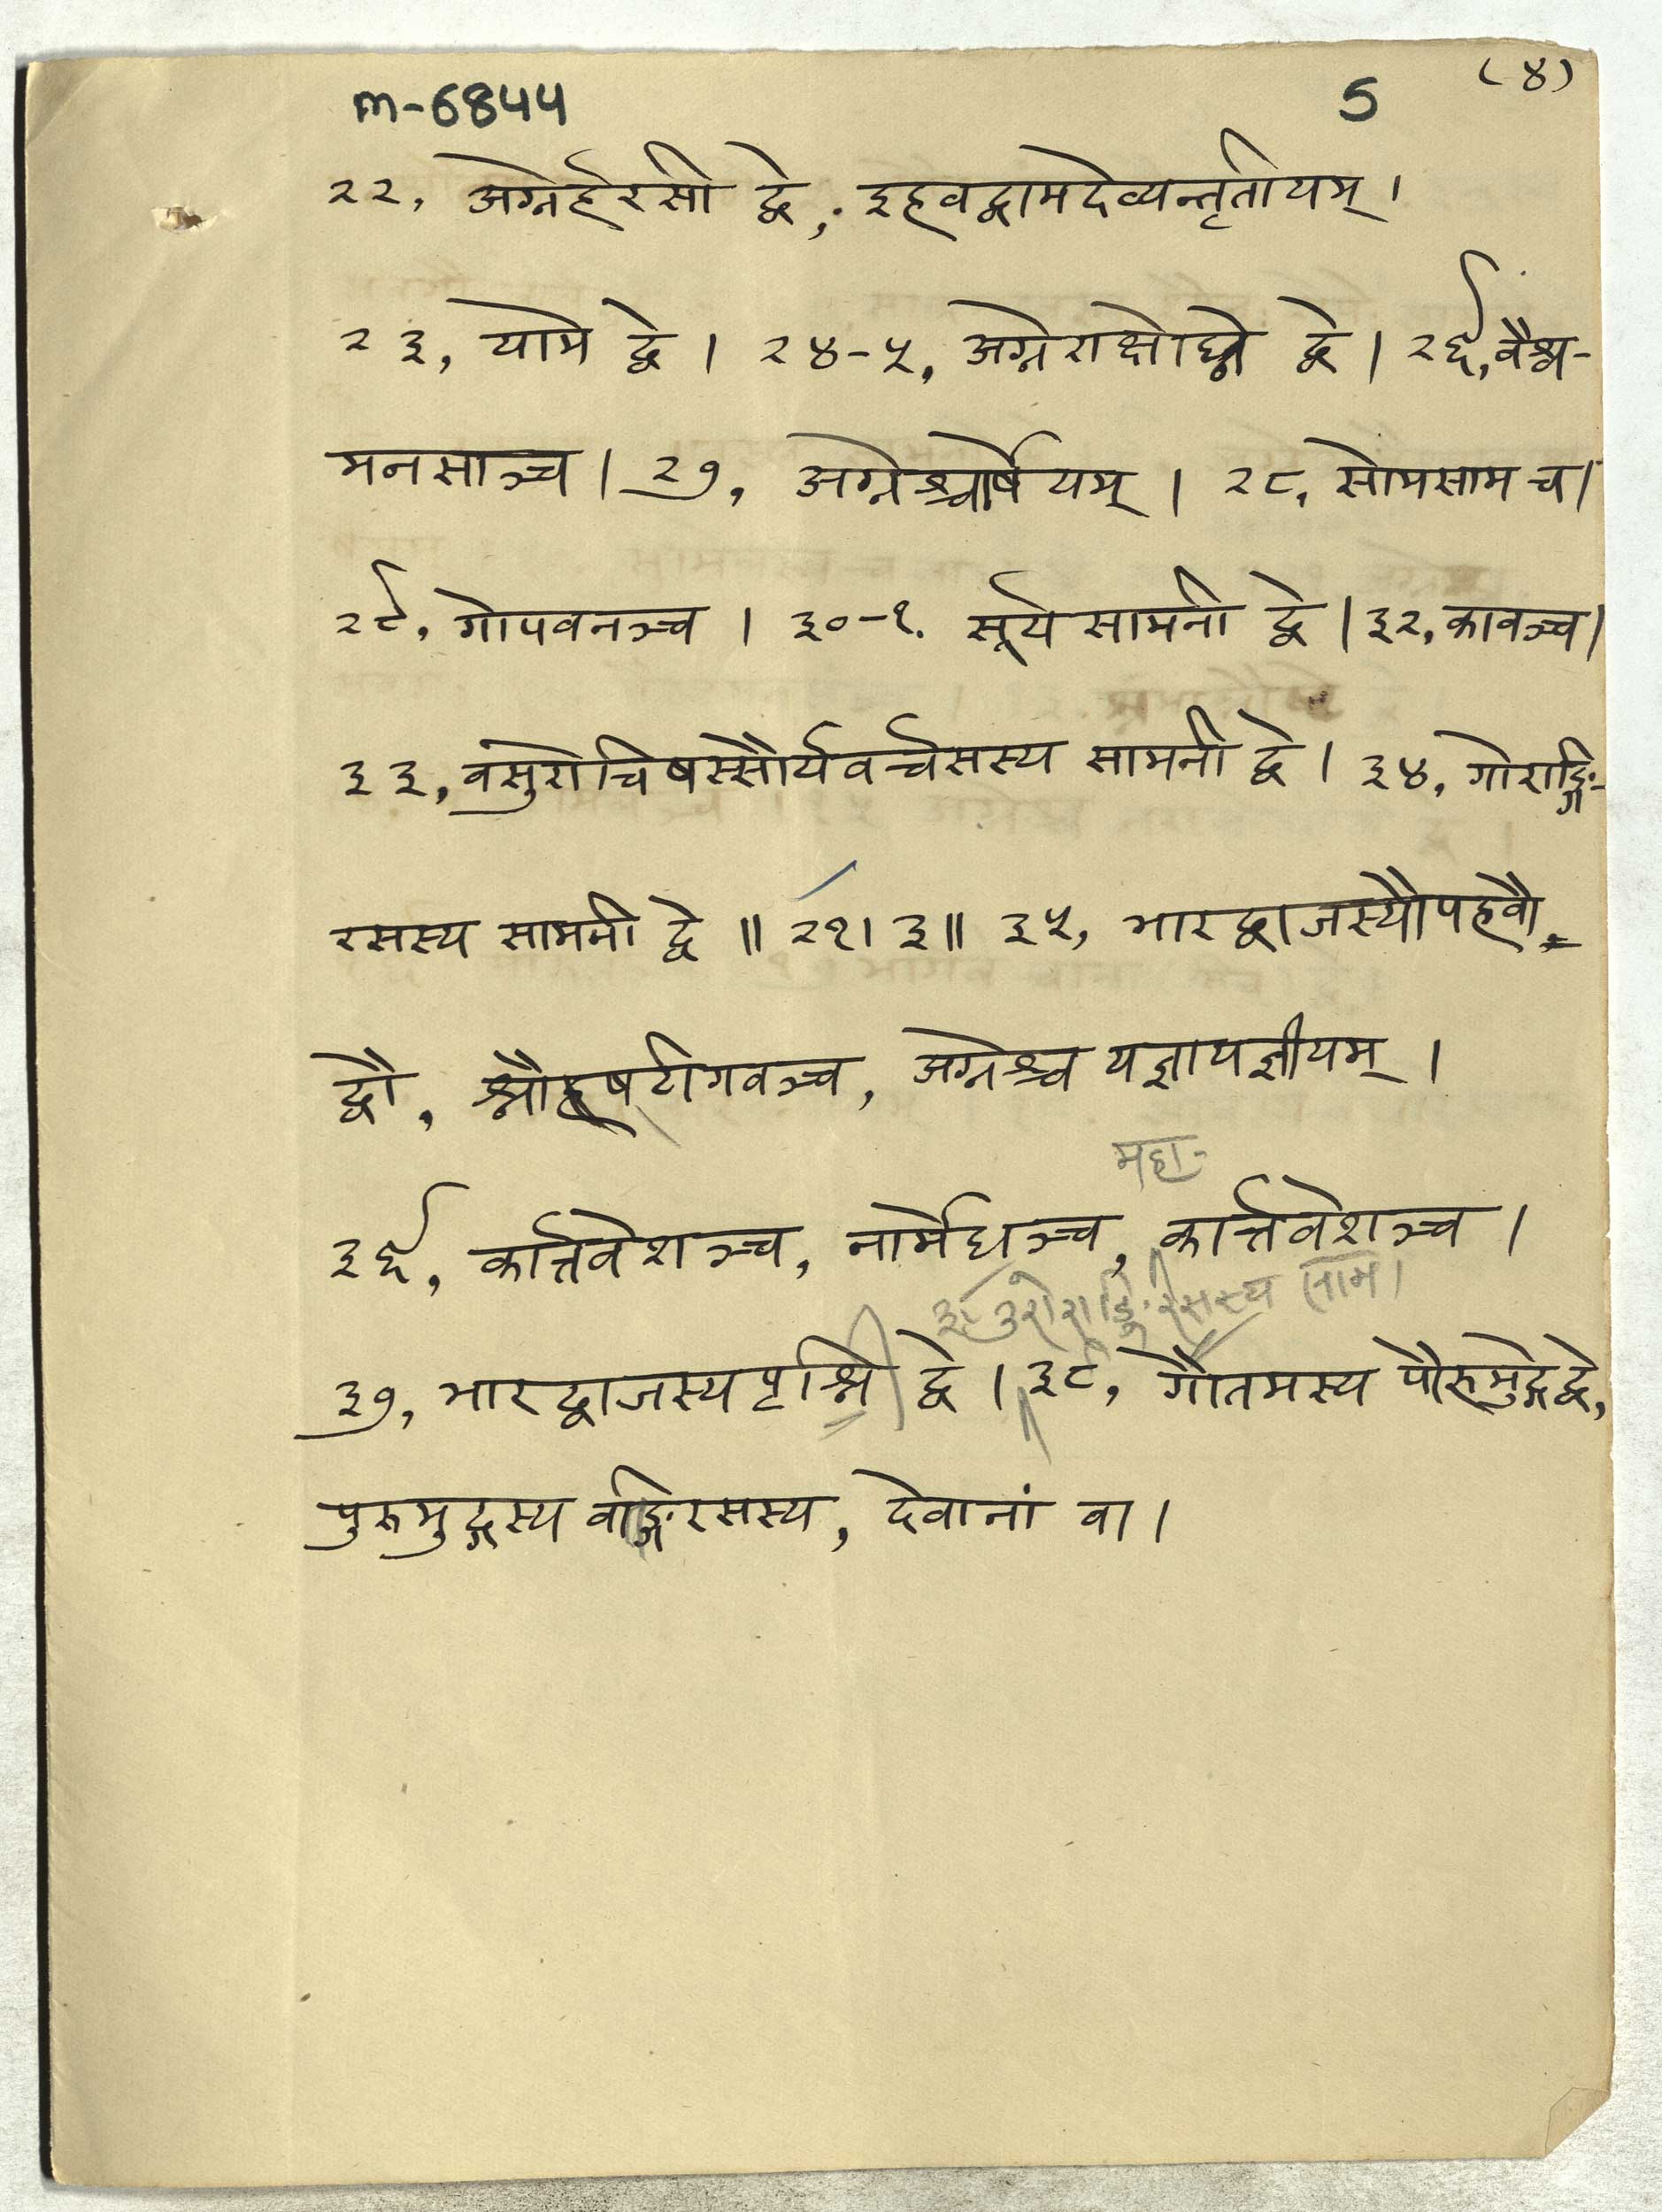 m-6844 5 (४)
२२, अग्नेर्हरसी द्वे, इहवद्वामदेव्यन्तृतीयम् ।
२३, यामे द्वे । २४-५, अग्नेराक्षोघ्ने द्वे । २६, वैश्व-
मनसाञ्च । २७, अग्नेश्चार्षेयम् । २८, सोमसाम च ।
२९, गोपवनञ्च । ३०-१. सूर्यसामनी द्वे । ३२, कावञ्च ।
३३, वसुरोचिषस्सौर्यवर्चसस्य सामनी द्वे । ३४, गोराङ्गि-
रसस्य सामनी द्वे ॥ २१। ३॥ ३५, भारद्वाजस्यौपहवौ
द्वौ, श्नौष्टीगवञ्च, अग्नेश्च यज्ञायज्ञीयम् ।
महा-
३६, कार्त्तवेशञ्च, नार्मेधञ्च, कार्त्तवेशञ्च ।
३८ उरोराङ्गिरसस्य साम ।
३७, भारद्वाजस्य पृश्निनी द्वे । ३८, गौतमस्य पौरुमुद्गे द्वे,
पुरुमुद्गस्य वाङ्गिरसस्य, देवानां वा ।